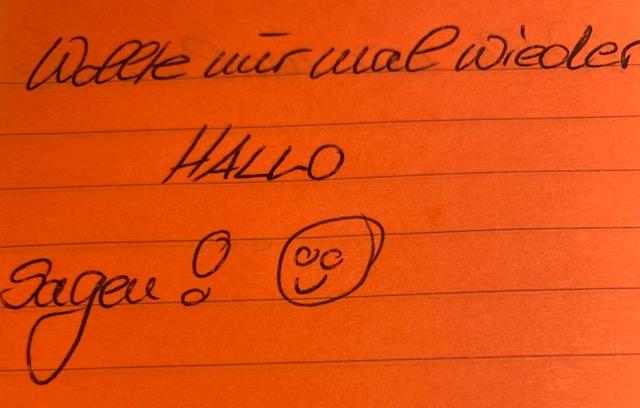 Wollte nur mal wieder
HALLO
sagen!